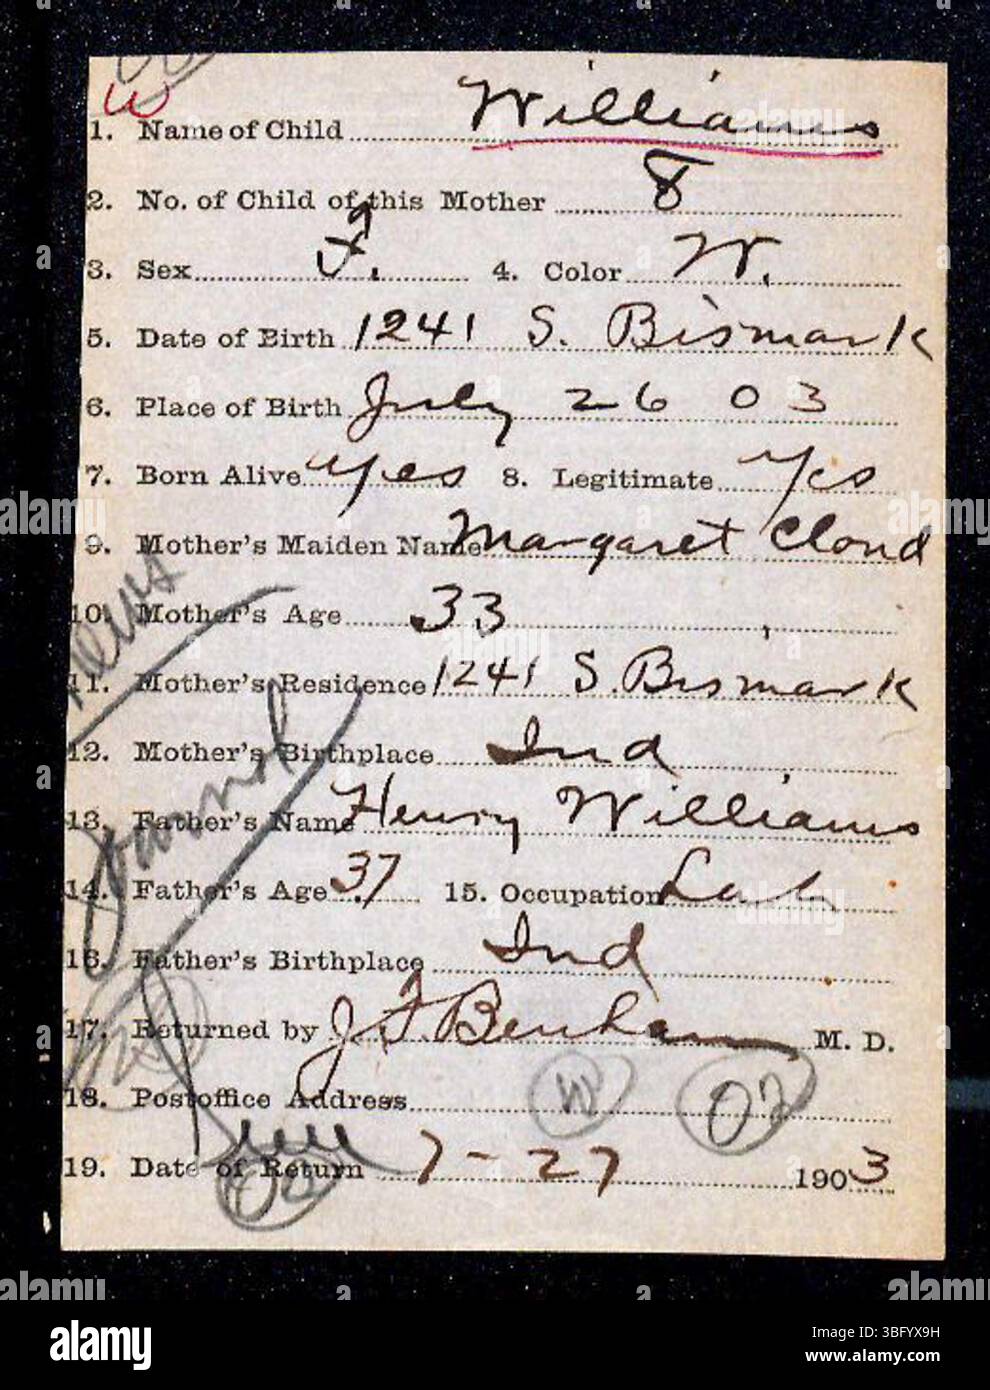 W
1. Name of Child Williams
2. No. of Child of this Mother 8
3. Sex F. 4. Color W.
5. Date of Birth 1241 S. Bismark
6. Place of Birth July 26 03
7. Born Alive Yes 8. Legitimate Yes
9. Mother's Maiden Name Margaret Cloud
10. Mother's Age 33
11. Mother's Residence 1241 S. Bismark
12. Mother's Birthplace Ind
13. Father's Name Henry Williams
14. Father's Age 37 15. Occupation Lab
16. Father's Birthplace Ind
17. Returned by J. F. Benham M. D.
18. Postoffice Address
W 02
19. Date of Return 7-27 1903
alamy
Image ID: 3BFYX9H
www.alamy.com